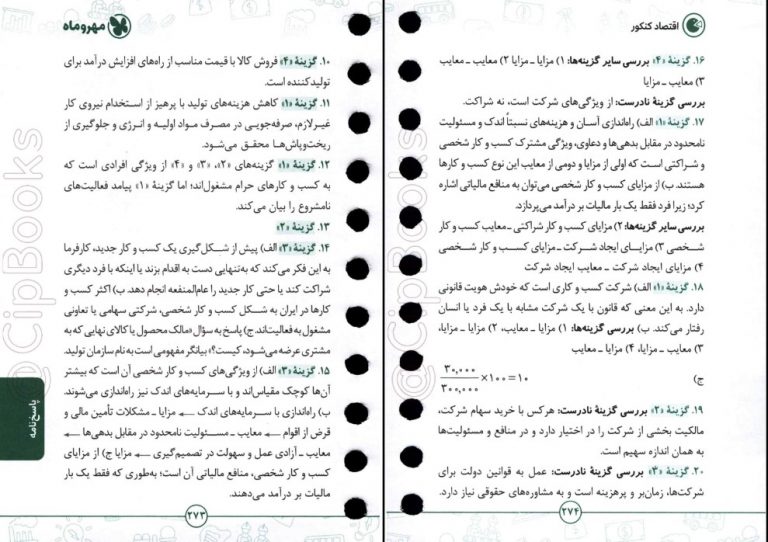 مهروماه
۱۰. گزینهٔ «۴» فروش کالا با قیمت مناسب از راه‌های افزایش درآمد برای
تولیدکننده است.
۱۱. گزینهٔ «۱» کاهش هزینه‌های تولید با پرهیز از استخدام نیروی کار
غیرلازم، صرفه‌جویی در مصرف مواد اولیه و انرژی و جلوگیری از
ریخت‌وپاش‌ها محقق می‌شود.
۱۲. گزینهٔ «۱» گزینه‌های «۲»، «۳» و «۴» از ویژگی افرادی است که
به کسب و کارهای حرام مشغول‌اند؛ اما گزینهٔ «۱» پیامد فعالیت‌های
نامشروع را بیان می‌کند.
۱۳. گزینهٔ «۲»
۱۴. گزینهٔ «۳» الف) پیش از شکل‌گیری یک کسب و کار جدید، کارفرما
به این فکر می‌کند که به‌تنهایی دست به اقدام بزند یا اینکه با فرد دیگری
شراکت کند یا حتی کار جدید را عام‌المنفعه انجام دهد. ب) اکثر کسب و
کارها در ایران به شکل کسب و کار شخصی، شرکتی سهامی یا تعاونی
مشغول به فعالیت‌اند. ج) پاسخ به سؤال «مالک محصول یا کالای نهایی که به
مشتری عرضه می‌شود، کیست؟» بیانگر مفهومی است به نام سازمان تولید.
۱۵. گزینهٔ «۳» الف) از ویژگی‌های کسب و کار شخصی آن است که بیشتر
آن‌ها کوچک مقیاس‌اند و با سرمایه‌های اندک نیز راه‌اندازی می‌شوند.
ب) راه‌اندازی با سرمایه‌های اندک ← مزایا ـ مشکلات تأمین مالی و
قرض از اقوام ← معایب ـ مسئولیت نامحدود در مقابل بدهی‌ها ←
معایب ـ آزادی عمل و سهولت در تصمیم‌گیری ← مزایا ج) از مزایای
کسب و کار شخصی، منافع مالیاتی آن است؛ به‌طوری که فقط یک بار
مالیات بر درآمد می‌دهند.
پاسخ‌نامه
۲۷۳
اقتصاد کنکور
۱۶. گزینهٔ «۴» بررسی سایر گزینه‌ها: ۱) مزایا ـ مزایا ۲) معایب ـ معایب
۳) معایب ـ مزایا
بررسی گزینهٔ نادرست: از ویژگی‌های شرکت است، نه شراکت.
۱۷. گزینهٔ «۱» الف) راه‌اندازی آسان و هزینه‌های نسبتاً اندک و مسئولیت
نامحدود در مقابل بدهی‌ها و دعاوی، ویژگی مشترک کسب و کار شخصی
و شراکتی است که اولی از مزایا و دومی از معایب این نوع کسب و کارها
هستند. ب) از مزایای کسب و کار شخصی می‌توان به منافع مالیاتی اشاره
کرد؛ زیرا فرد فقط یک بار مالیات بر درآمد می‌پردازد.
بررسی سایر گزینه‌ها: ۲) مزایای کسب و کار شراکتی ـ معایب کسب و کار
شخصی ۳) مزایای ایجاد شرکت ـ مزایای کسب و کار شخصی
۴) مزایای ایجاد شرکت ـ معایب ایجاد شرکت
۱۸. گزینهٔ «۱» الف) شرکت کسب و کاری است که خودش هویت قانونی
دارد. به این معنی که قانون با یک شرکت مشابه با یک فرد یا انسان
رفتار می‌کند. ب) بررسی گزینه‌ها: ۱) مزایا ـ معایب، ۲) مزایا ـ مزایا،
۳) معایب ـ مزایا، ۴) مزایا ـ معایب
ج) ۳۰,۰۰۰ / ۳۰۰,۰۰۰ × ۱۰۰ = ۱۰
۱۹. گزینهٔ «۲» بررسی گزینهٔ نادرست: هرکس با خرید سهام شرکت،
مالکیت بخشی از شرکت را در اختیار دارد و در منافع و مسئولیت‌ها
به همان اندازه سهیم است.
۲۰. گزینهٔ «۳» بررسی گزینهٔ نادرست: عمل به قوانین دولت برای
شرکت‌ها، زمان‌بر و پرهزینه است و به مشاوره‌های حقوقی نیاز دارد.
۲۷۴
@CipBooks
@CipBooks